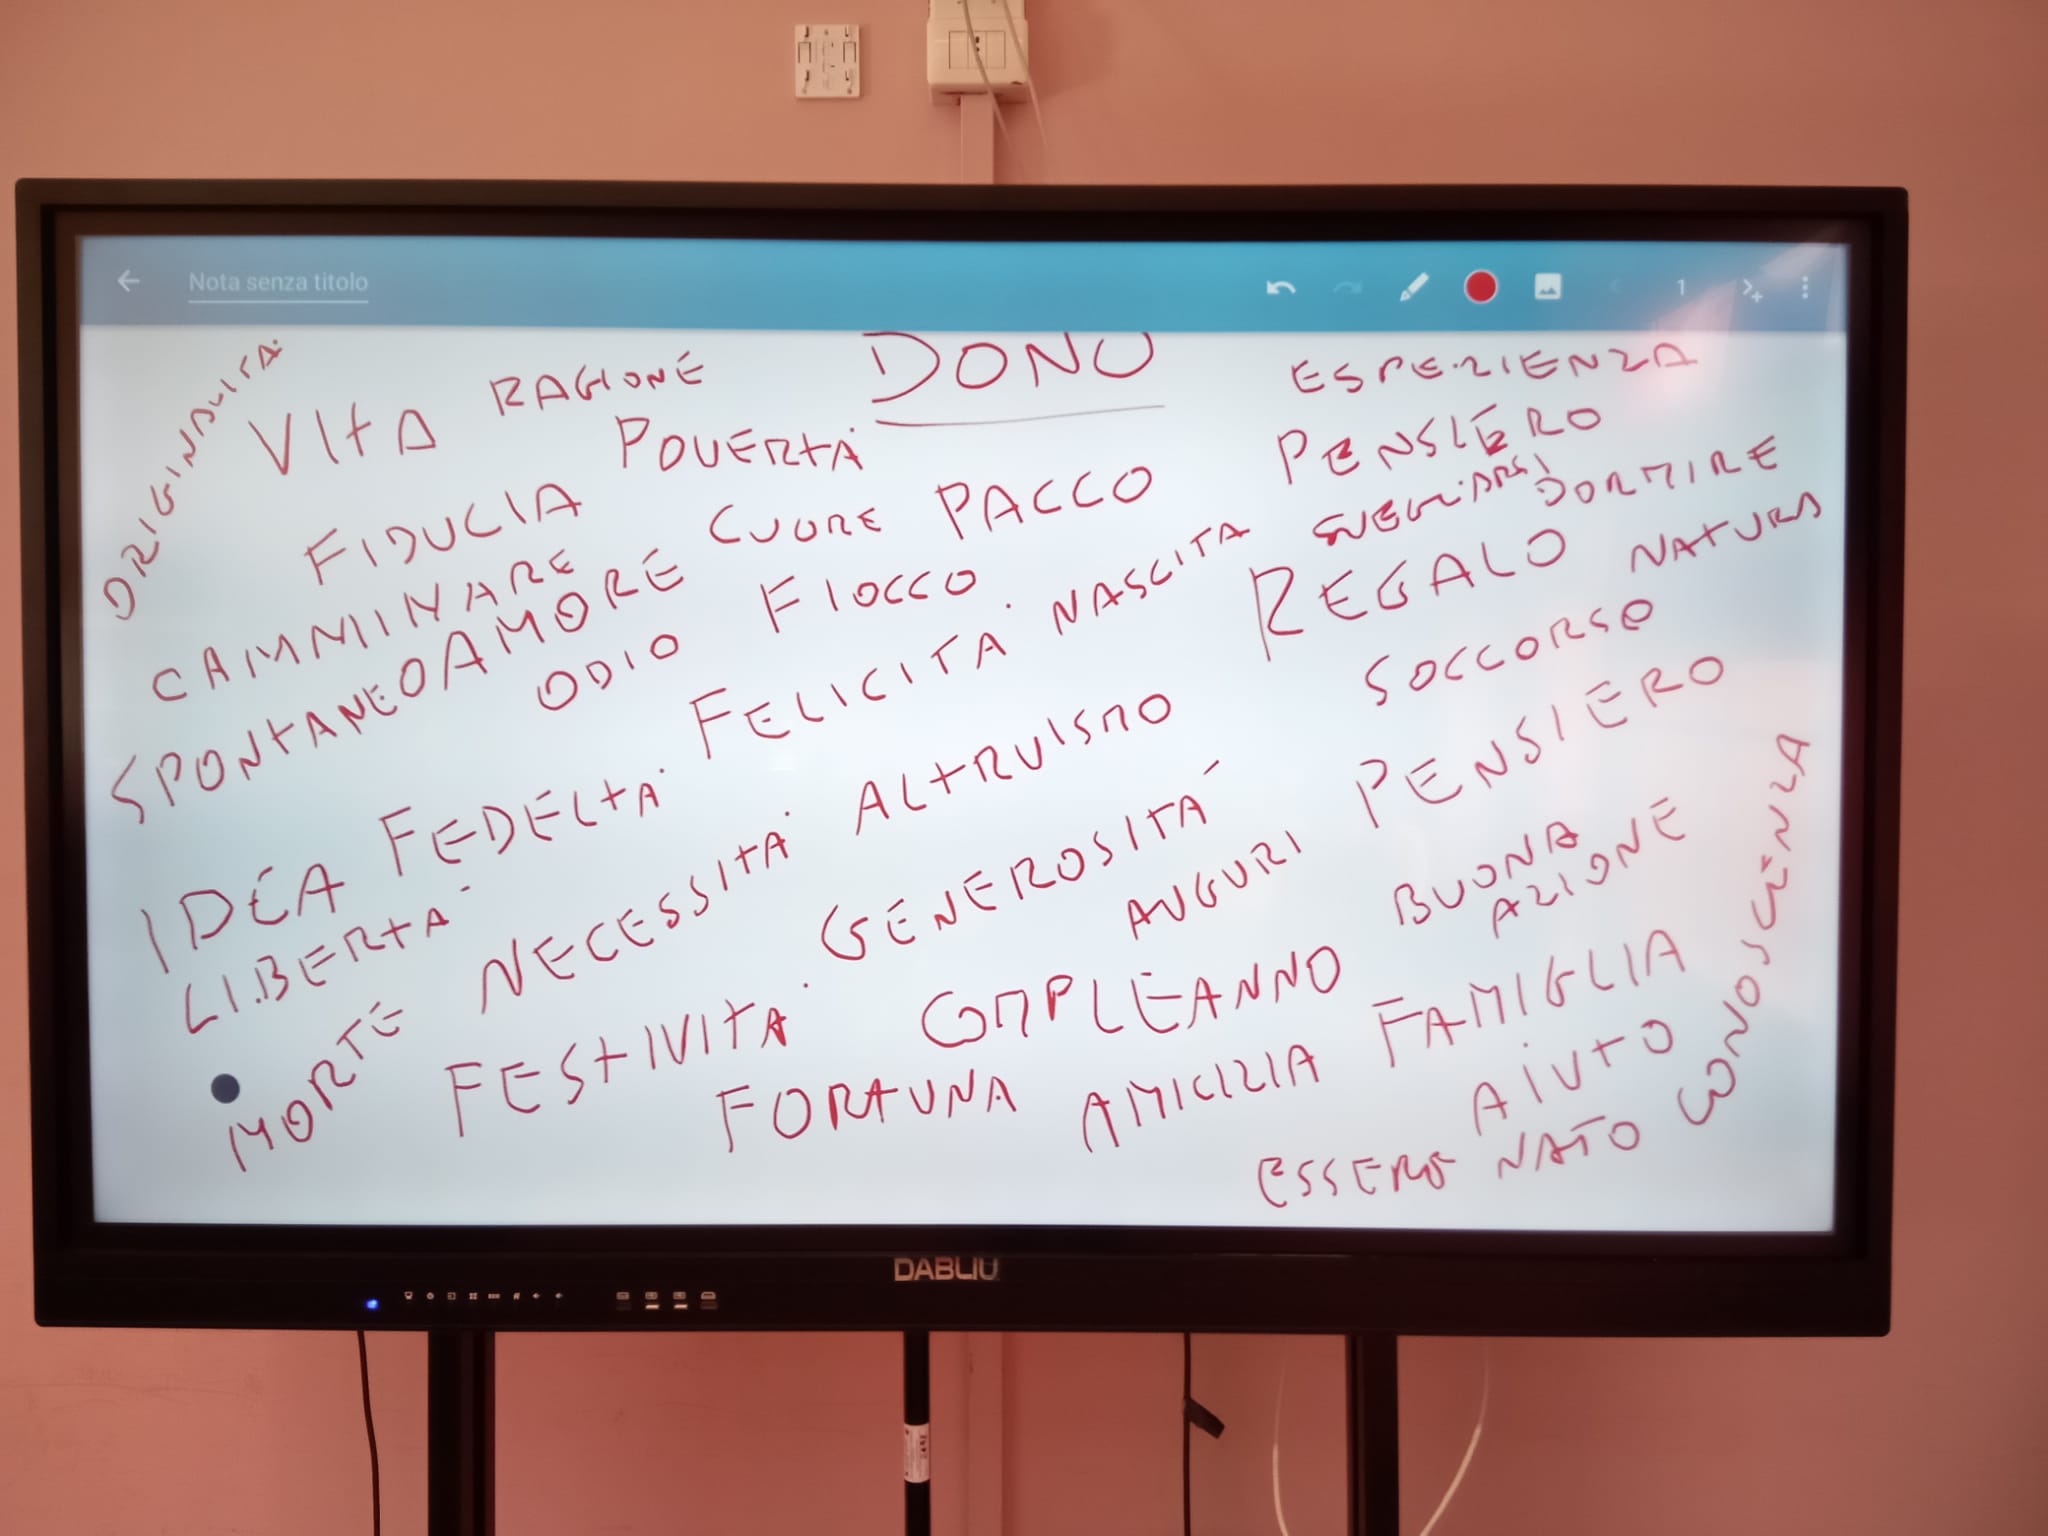 Nota senza titolo
1
DONO
ORIGINALITA'
VITA
RAGIONE
POVERTA'
ESPERIENZA
PENSIERO
SVEGLIARSI
DORMIRE
FIDUCIA
CUORE
PACCO
CAMMINARE
SPONTANEO
AMORE
ODIO
FIOCCO
NASCITA
REGALO
NATURA
FELICITA'
SOCCORSO
IDEA
FEDELTA'
ALTRUISMO
PENSIERO
LIBERTA'
NECESSITA'
GENEROSITA'
AUGURI
BUONA
AZIONE
CONOSCENZA
MORTE
FESTIVITA'
COMPLEANNO
FAMIGLIA
FORTUNA
AMICIZIA
AIUTO
ESSERE NATO
DABLIU